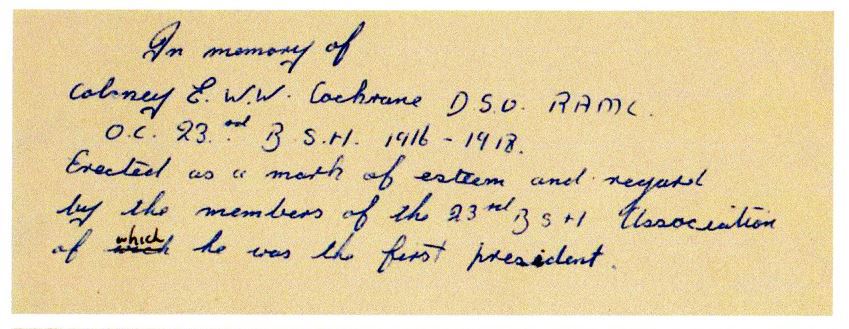 In memory of
Coloney E. W.W. Cochrane D S.O. RAMC.
O.C. 23.rd B S.H. 1916 - 1918.
Erected as a mark of esteem and regard
by the members of the 23rd B S H Association
of which he was the first president.